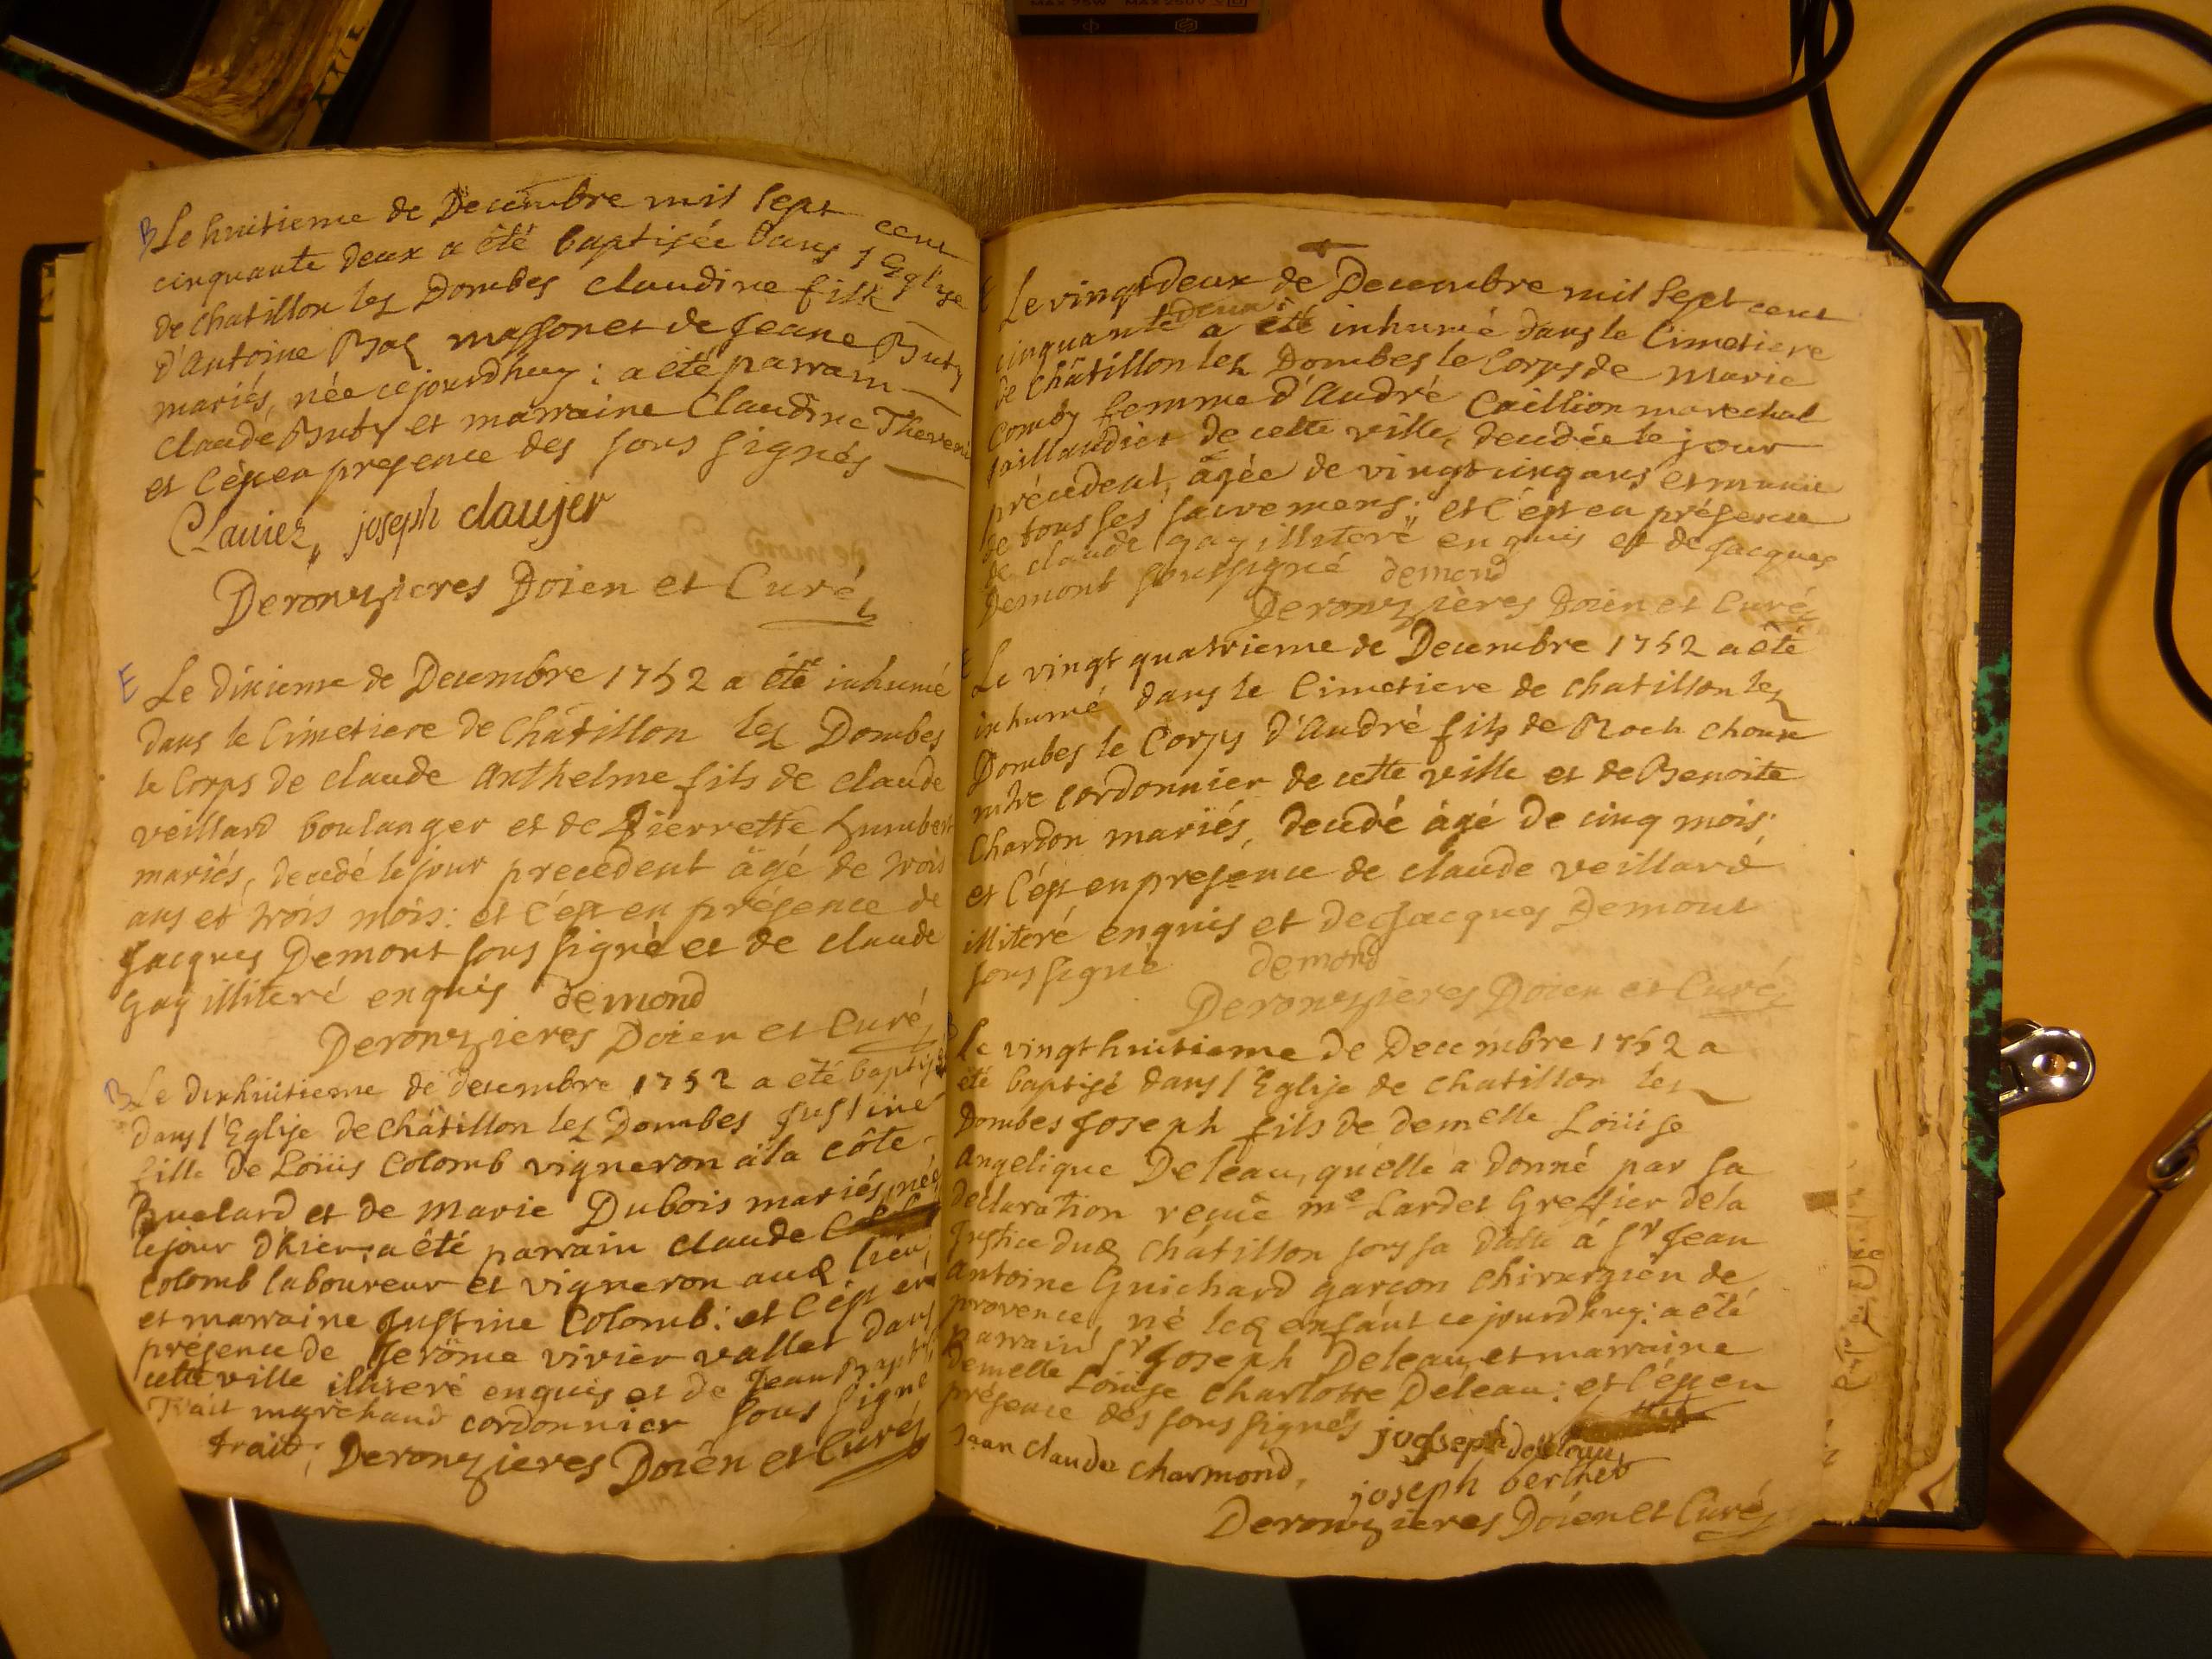 B Le huitieme de Decembre mil sept cent
cinquante deux a été baptisée dans l'Eglise
de chatillon les Dombes claudine fille
d'Antoine masson et de Jeane Buty
mariés, née cejourdhuy: a été parrain
claude Buty et marraine Claudine
et c'ést en presence des sous signés
Clainez, joseph claujer
Deronzieres Doien et Curé
E Le dixieme de Decembre 1752 a été inhumé
dans le Cimetiere de Châtillon les Dombes
le Corps de claude Anthelme fils de claude
veillard boulanger et de Pierrette humbert
mariés, decedé le jour precedent âgé de trois
ans et trois mois: et c'ést en présence de
Jacques Demont sous signé et de claude
Gay illiteré enquis demond
Deronzieres Doien et Curé
B Le dixhuitieme de decembre 1752 a été baptisée
dans l'Eglise de châtillon les Dombes Justine
fille de Loüis Colomb vigneron à la côte
Buelard et de Marie Dubois mariés, née
le jour d'hier: a été parrain claude
Colomb laboureur et vigneron aud lieu
et marraine Justine Colomb: et c'ést en
présence de Jerôme vivier vallet dans
cette ville illiteré enquis et de Jean Baptiste
Trait marchand cordonnier sous signé
trait; Deronzieres Doien et Curé
E Le vingt deux de Decembre mil sept cent
cinquante deux a été inhumé dans le Cimetiere
de Châtillon les Dombes le Corps de Marie
Comby femme d'André Caillion marechal
taillandier de cette ville, decedée le jour
précedent, âgée de vingt cinq ans et munie
de tous ses sacremens; et c'ést en présence
de claude gay illiteré enquis et de Jacques
Demont soussigné demond
Deronzières Doien et Curé
E Le vingt quatrieme de Decembre 1752 a été
inhumé dans le Cimetiere de chatillon les
Dombes le Corps d'André fils de Roch
mtre cordonnier de cette ville et de Benoite
Chardon mariés, decedé âgé de cinq mois;
et c'ést en presence de claude veillard
illiteré enquis et de Jacques Demont
sous signé demond
Deronzieres Doien et Curé
B Le vingthuitieme de Decembre 1752 a
été baptisé dans l'Eglise de chatillon les
Dombes Joseph fils de demelle Loüise
Angelique Deleau, qu'elle a donné par sa
declaration reçüe me Lardet Greffier de la
Justice dud châtillon sous sa datte à Sr Jean
Antoine Guichard garçon chirurgien de
provence, né led enfant cejourdhuy: a été
parrain Sr Joseph Deleau, et marraine
demelle Loüise Charlotte Deleau: et c'ést en
présence des sous signés joseph deleau
jean claude charmond, joseph berthet
Deronzieres Doien et Curé